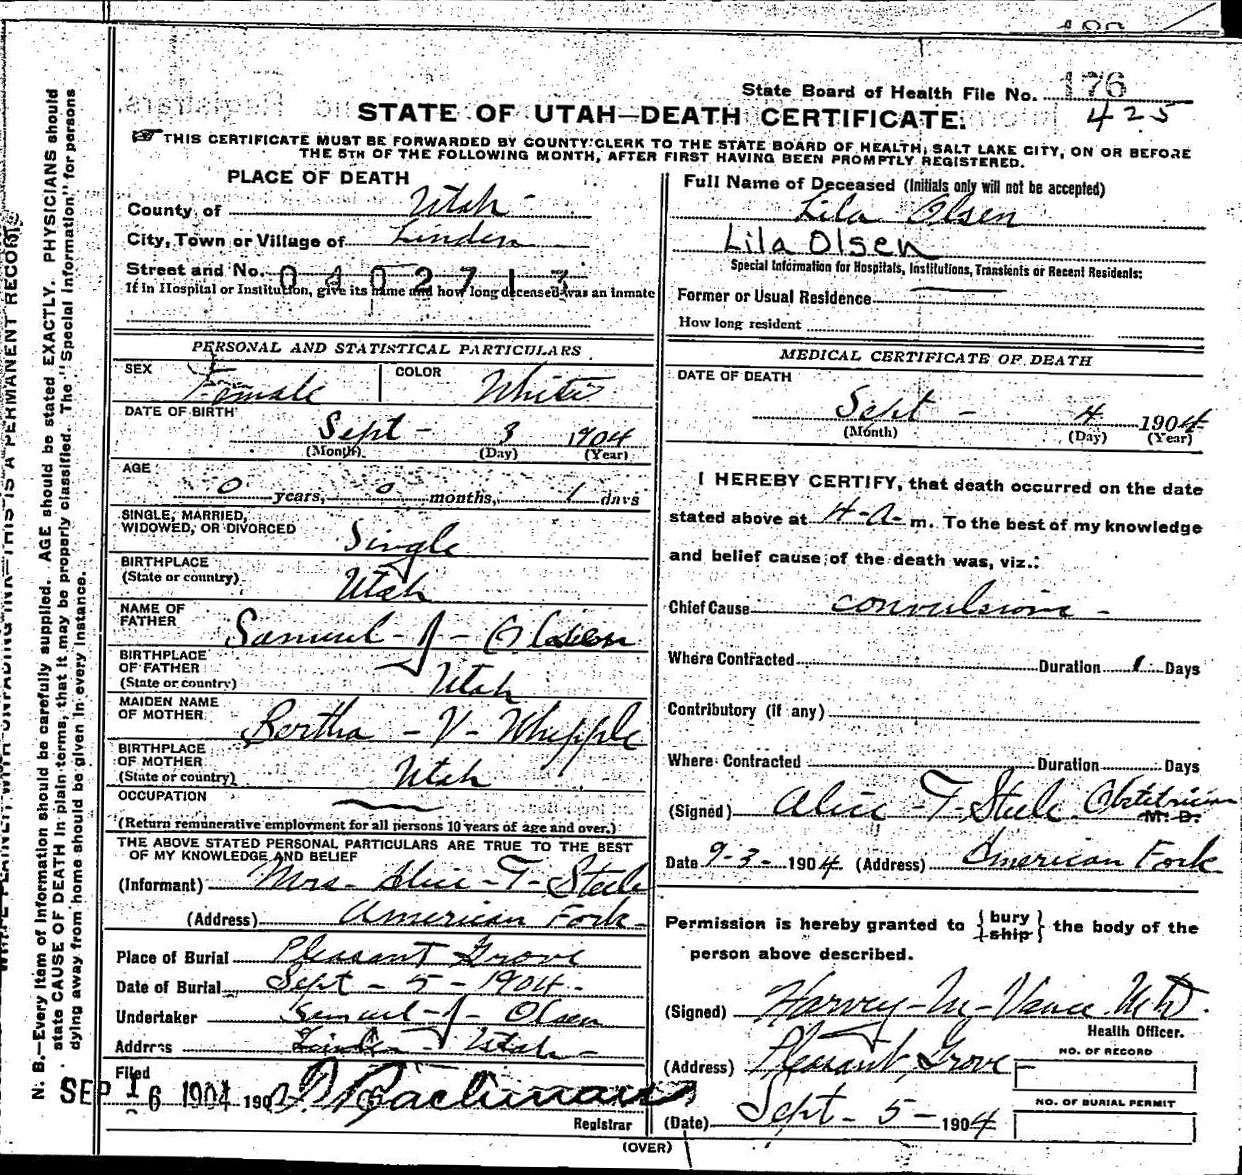 State Board of Health File No. 176
425
STATE OF UTAH—DEATH CERTIFICATE.
THIS CERTIFICATE MUST BE FORWARDED BY COUNTY CLERK TO THE STATE BOARD OF HEALTH, SALT LAKE CITY, ON OR BEFORE
THE 5TH OF THE FOLLOWING MONTH, AFTER FIRST HAVING BEEN PROMPTLY REGISTERED.
PLACE OF DEATH
County of Utah
City, Town or Village of Linden
Street and No. 0402713
If in Hospital or Institution, give its name and how long deceased was an inmate
PERSONAL AND STATISTICAL PARTICULARS
SEX Female COLOR White
DATE OF BIRTH
Sept - 3 1904
(Month) (Day) (Year)
AGE
0 years, 0 months, 1 days
SINGLE, MARRIED,
WIDOWED, OR DIVORCED Single
BIRTHPLACE
(State or country) Utah
NAME OF
FATHER Samuel - J - Olsen
BIRTHPLACE
OF FATHER
(State or country) Utah
MAIDEN NAME
OF MOTHER Bertha - V - Whipple
BIRTHPLACE
OF MOTHER
(State or country) Utah
OCCUPATION
(Return remunerative employment for all persons 10 years of age and over.)
THE ABOVE STATED PERSONAL PARTICULARS ARE TRUE TO THE BEST
OF MY KNOWLEDGE AND BELIEF
(Informant) Mrs - Alice - T - Steele
(Address) American Fork -
Place of Burial Pleasant Grove
Date of Burial Sept - 5 - 1904 -
Undertaker Samuel - J - Olsen
Address Linden - Utah -
Filed
SEP 16 1904 190
Registrar
Full Name of Deceased (Initials only will not be accepted)
Lila Olsen
Lila Olsen
Special Information for Hospitals, Institutions, Transients or Recent Residents:
Former or Usual Residence
How long resident
MEDICAL CERTIFICATE OF DEATH
DATE OF DEATH
Sept - 4 1904
(Month) (Day) (Year)
I HEREBY CERTIFY, that death occurred on the date
stated above at 4-a-m. To the best of my knowledge
and belief cause of the death was, viz.:
Chief Cause convulsions -
Where Contracted Duration 1 Days
Contributory (if any)
Where Contracted Duration Days
(Signed) Alice - T - Steele Obstetrician
M. D.
Date 9-3- 1904 (Address) American Fork
Permission is hereby granted to {bury ship} the body of the
person above described.
(Signed) Harvey - M - Vance M D.
Health Officer.
(Address) Pleasant Grove -
NO. OF RECORD
NO. OF BURIAL PERMIT
(Date) Sept - 5 - 1904
(OVER)
N. B.—Every item of information should be carefully supplied. AGE should be stated EXACTLY. PHYSICIANS should
state CAUSE OF DEATH in plain terms, that it may be properly classified. The "Special Information" for persons
dying away from home should be given in every instance.
WRITE PLAINLY WITH UNFADING INK—THIS IS A PERMANENT RECORD